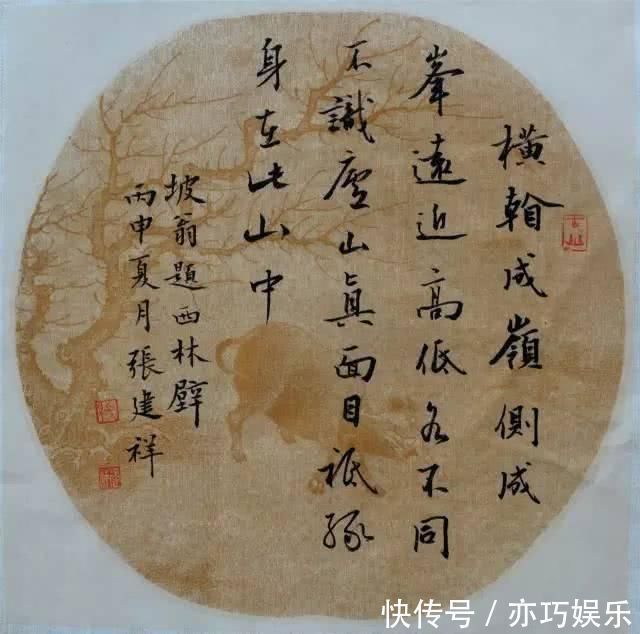 橫看成嶺側成
峯遠近高低各不同
不識廬山眞面目祇緣
身在此山中
坡翁題西林壁
丙申夏月張建祥
快传号 / 亦巧娱乐